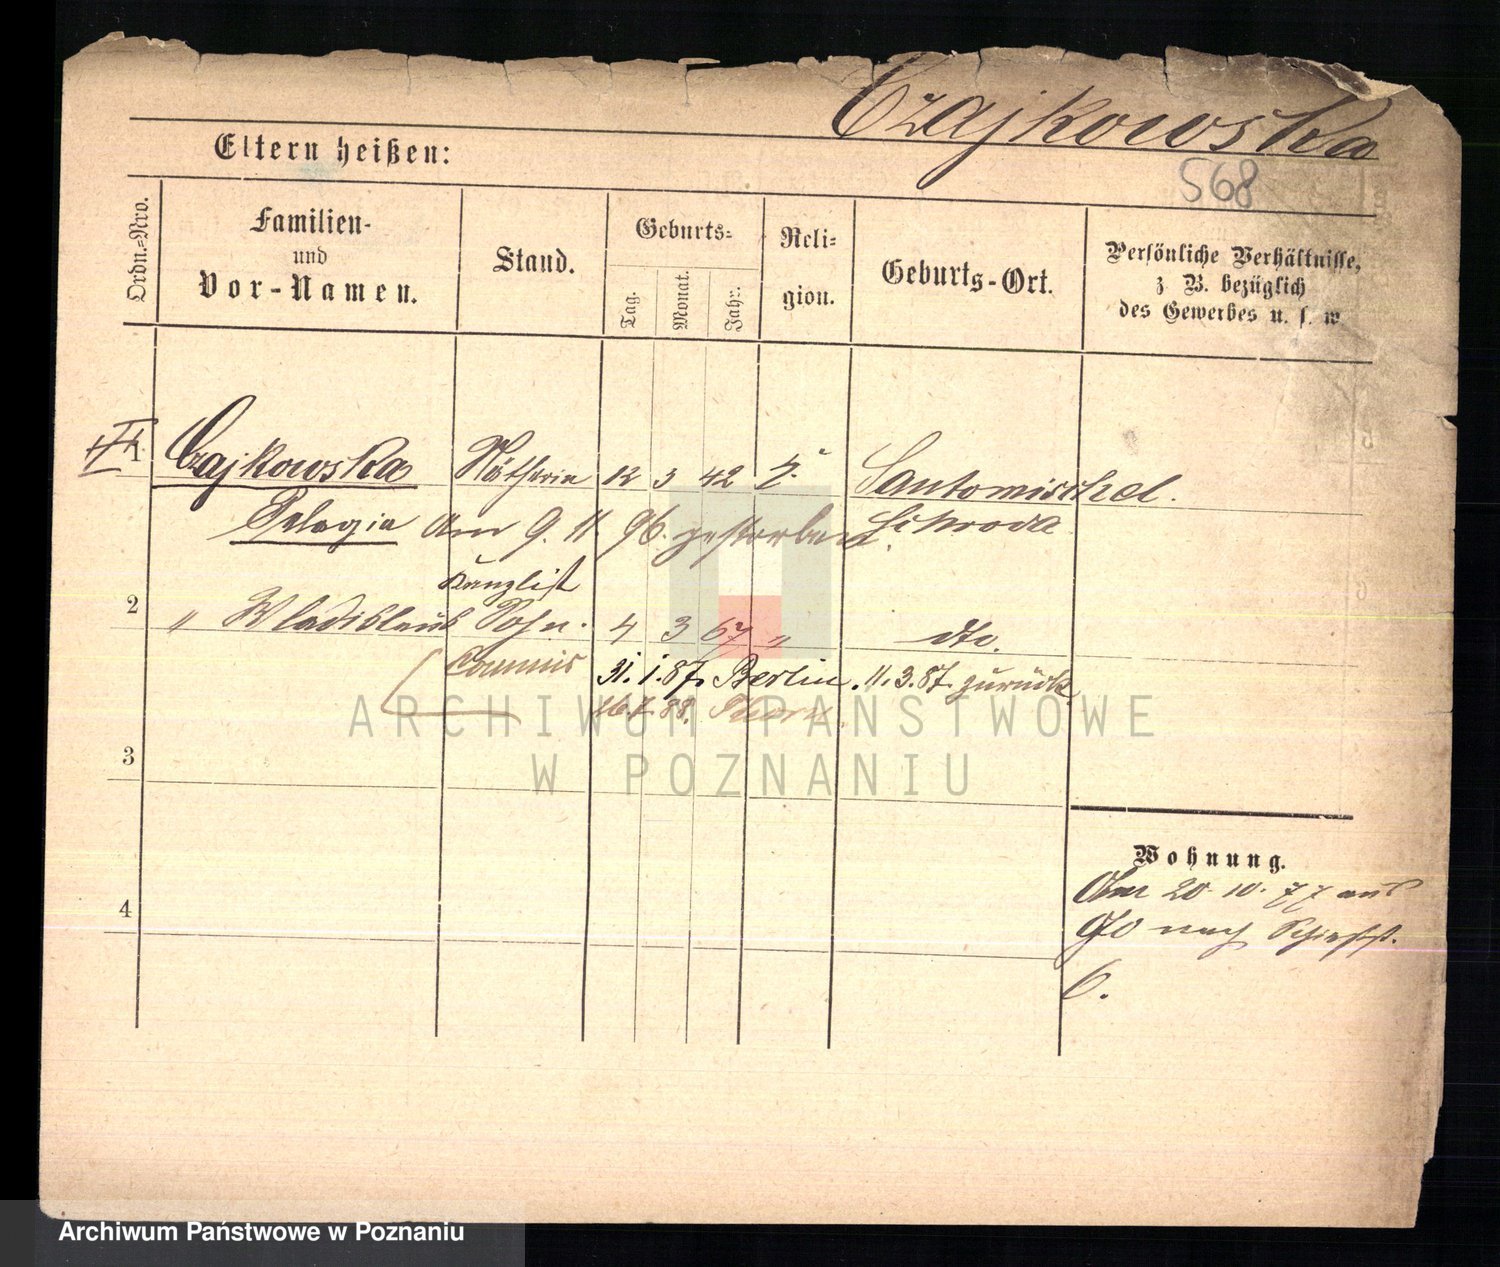 Czajkowska
Eltern heißen:
568
Ordn.=Nro.
Familien-
und
Vor-Namen.
Stand.
Geburts=
Tag.
Monat.
Jahr.
Reli=
gion.
Geburts-Ort.
Persönliche Verhältnisse,
z B. bezüglich
des Gewerbes u. s. w
1 Czajkowska Nätherin 12 3 42 Santomischel.
Pelagia am 9. 11. 96. gestorben. Schroda
Kanzlist
2 " Wladislaus Sohn. 4 3 67 " dto.
Commis 31. 1. 87. Berlin. 11. 3. 87. zurück
16. 7. 88. Thorn.
3
Wohnung.
Am 20. 10. 77 aus
4
nach Schießst.
6.
ARCHIWUM PAŃSTWOWE
W POZNANIU
Archiwum Państwowe w Poznaniu